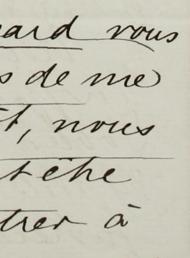 ard vous
s de me
t, nous
t être
trer à